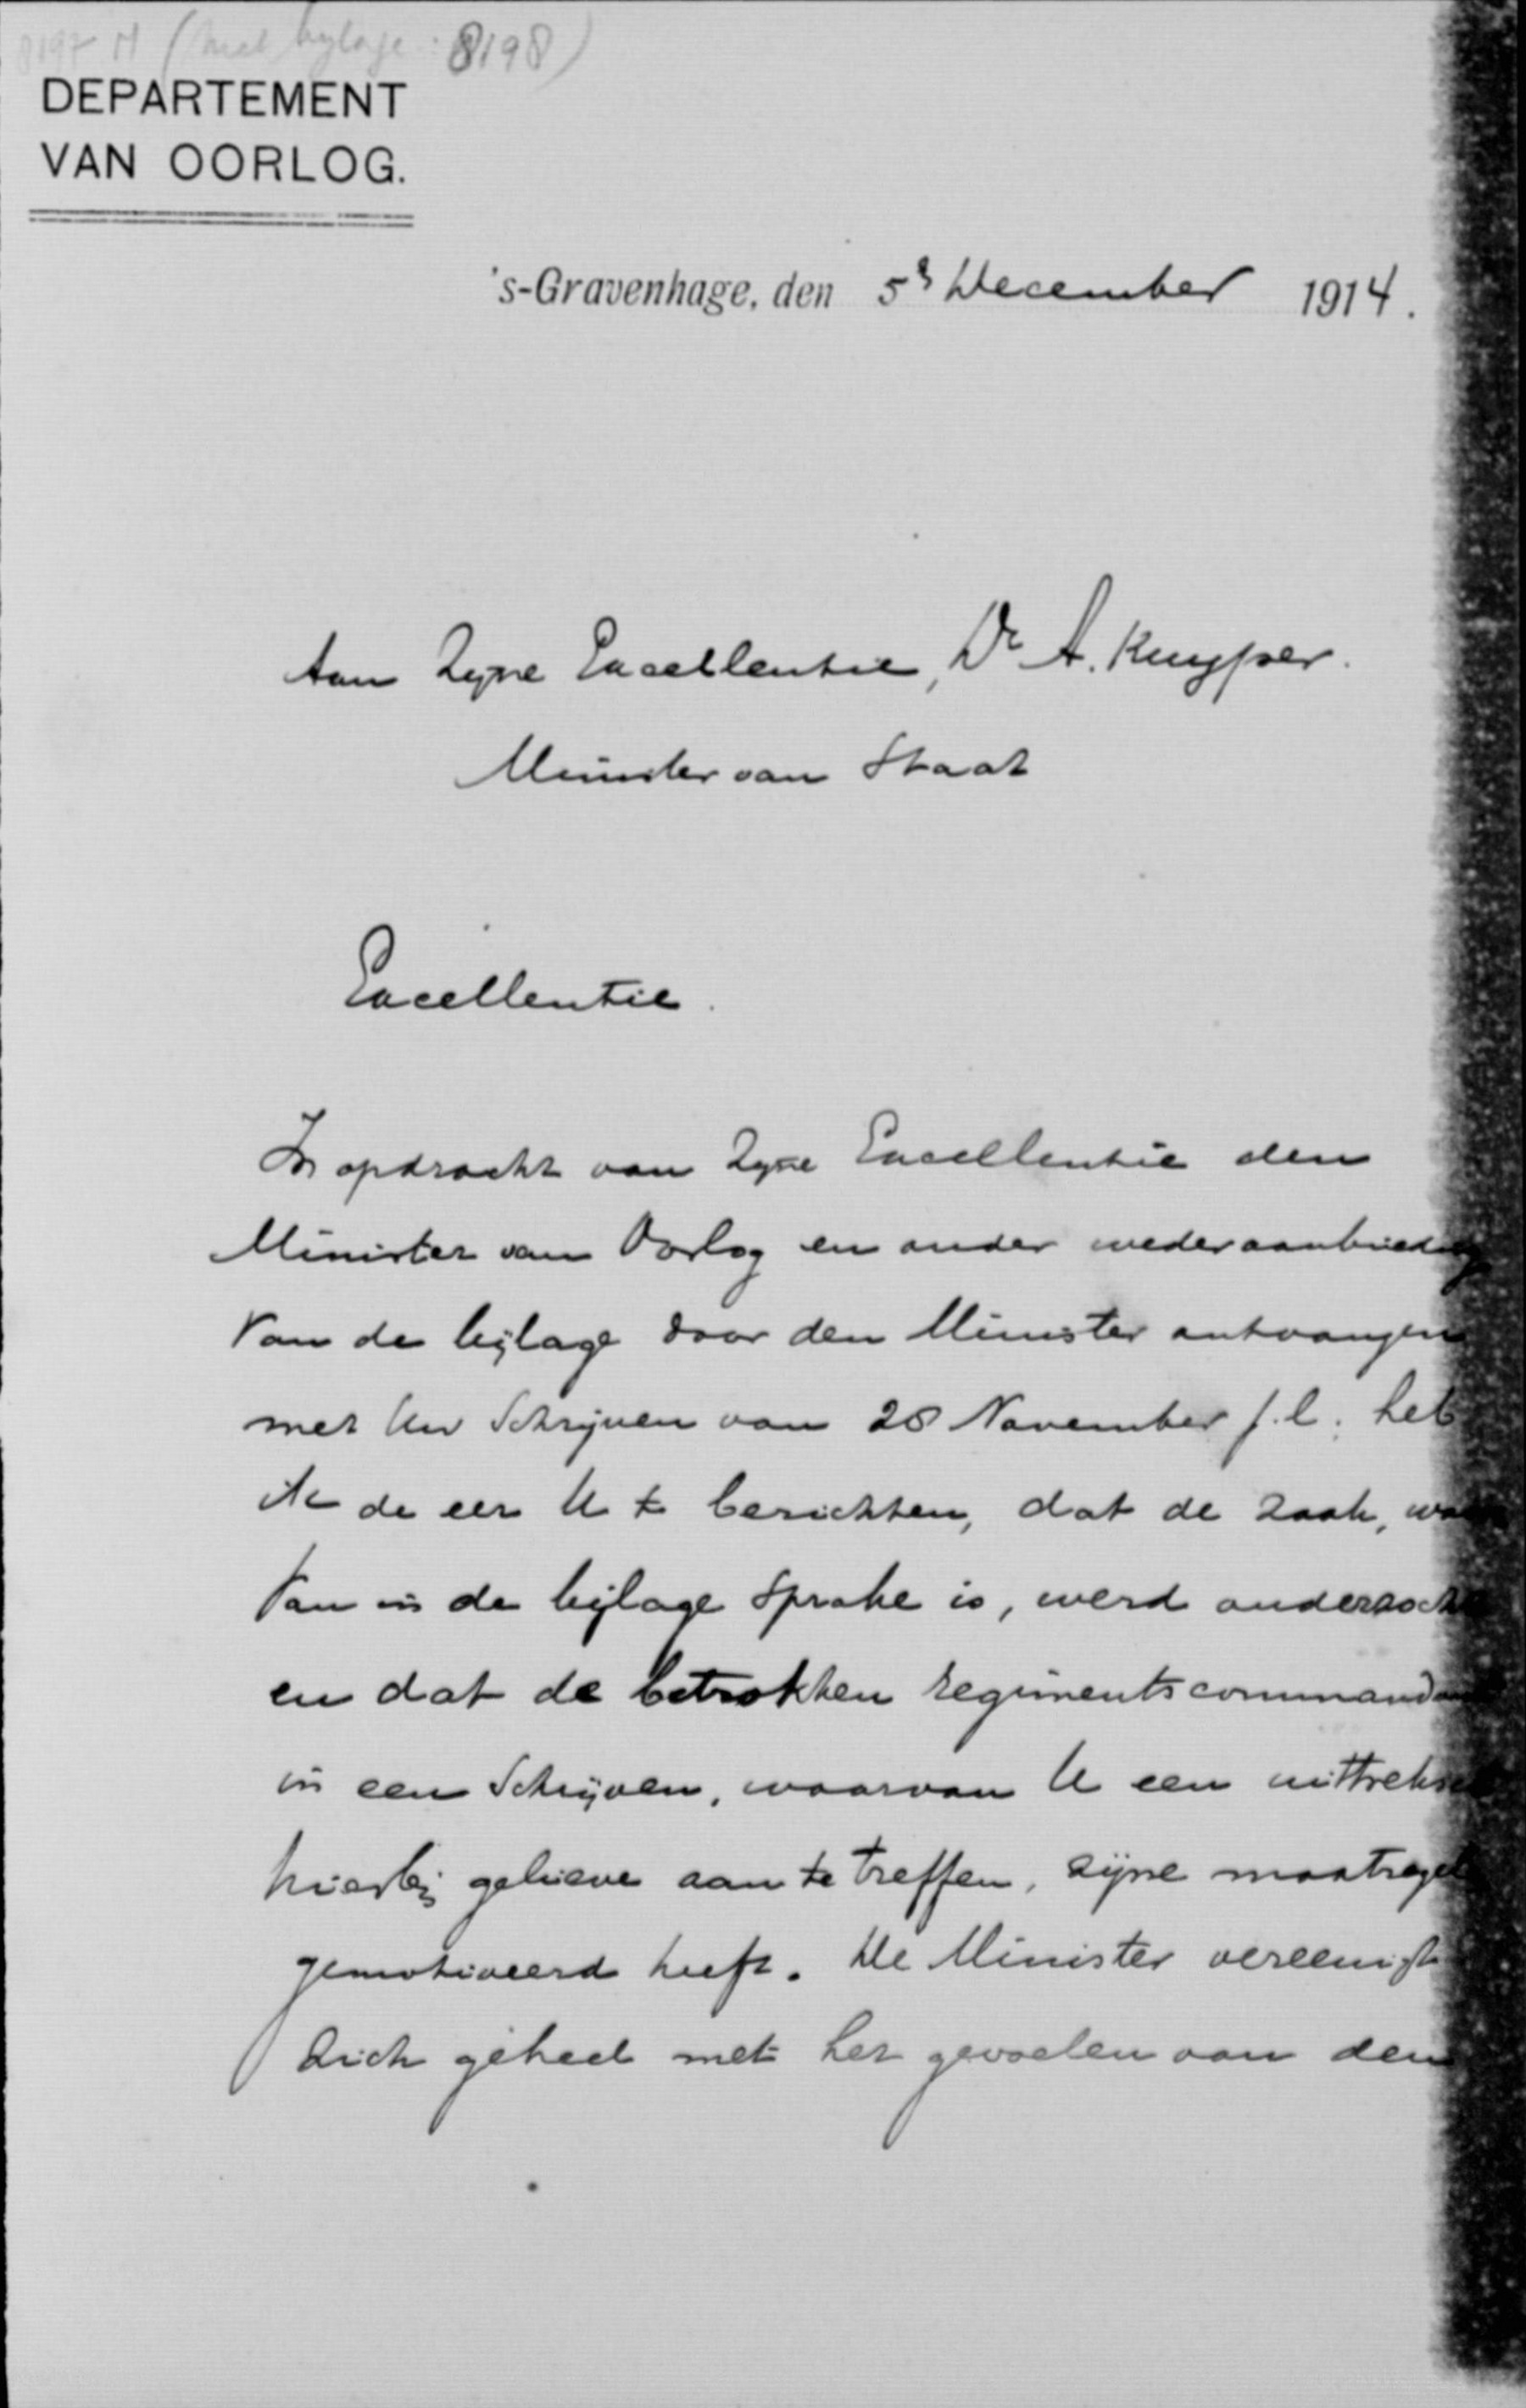 8197 H (met bylage: 8198)
DEPARTEMENT
VAN OORLOG.
's-Gravenhage, den 5e December 1914.
Aan Zyne Excellentie, Dr A. Kuyper.
Minister van Staat
Excellentie.
In opdracht van Zyne Excellentie den
Minister van Oorlog en onder wederaanbieding
van de bijlage door den Minister ontvangen
met Uw Schrijven van 28 November j.l. heb
ik de eer U te berichten, dat de zaak, waar
van in de bijlage sprake is, werd onderzocht
en dat de betrokken regimentscommandant
in een Schrijven, waarvan U een uittreksel
hierbij gelieve aan te treffen, zijne maatregel
gemotiveerd heeft. De Minister vereenigt
zich geheel met het gevoelen van den